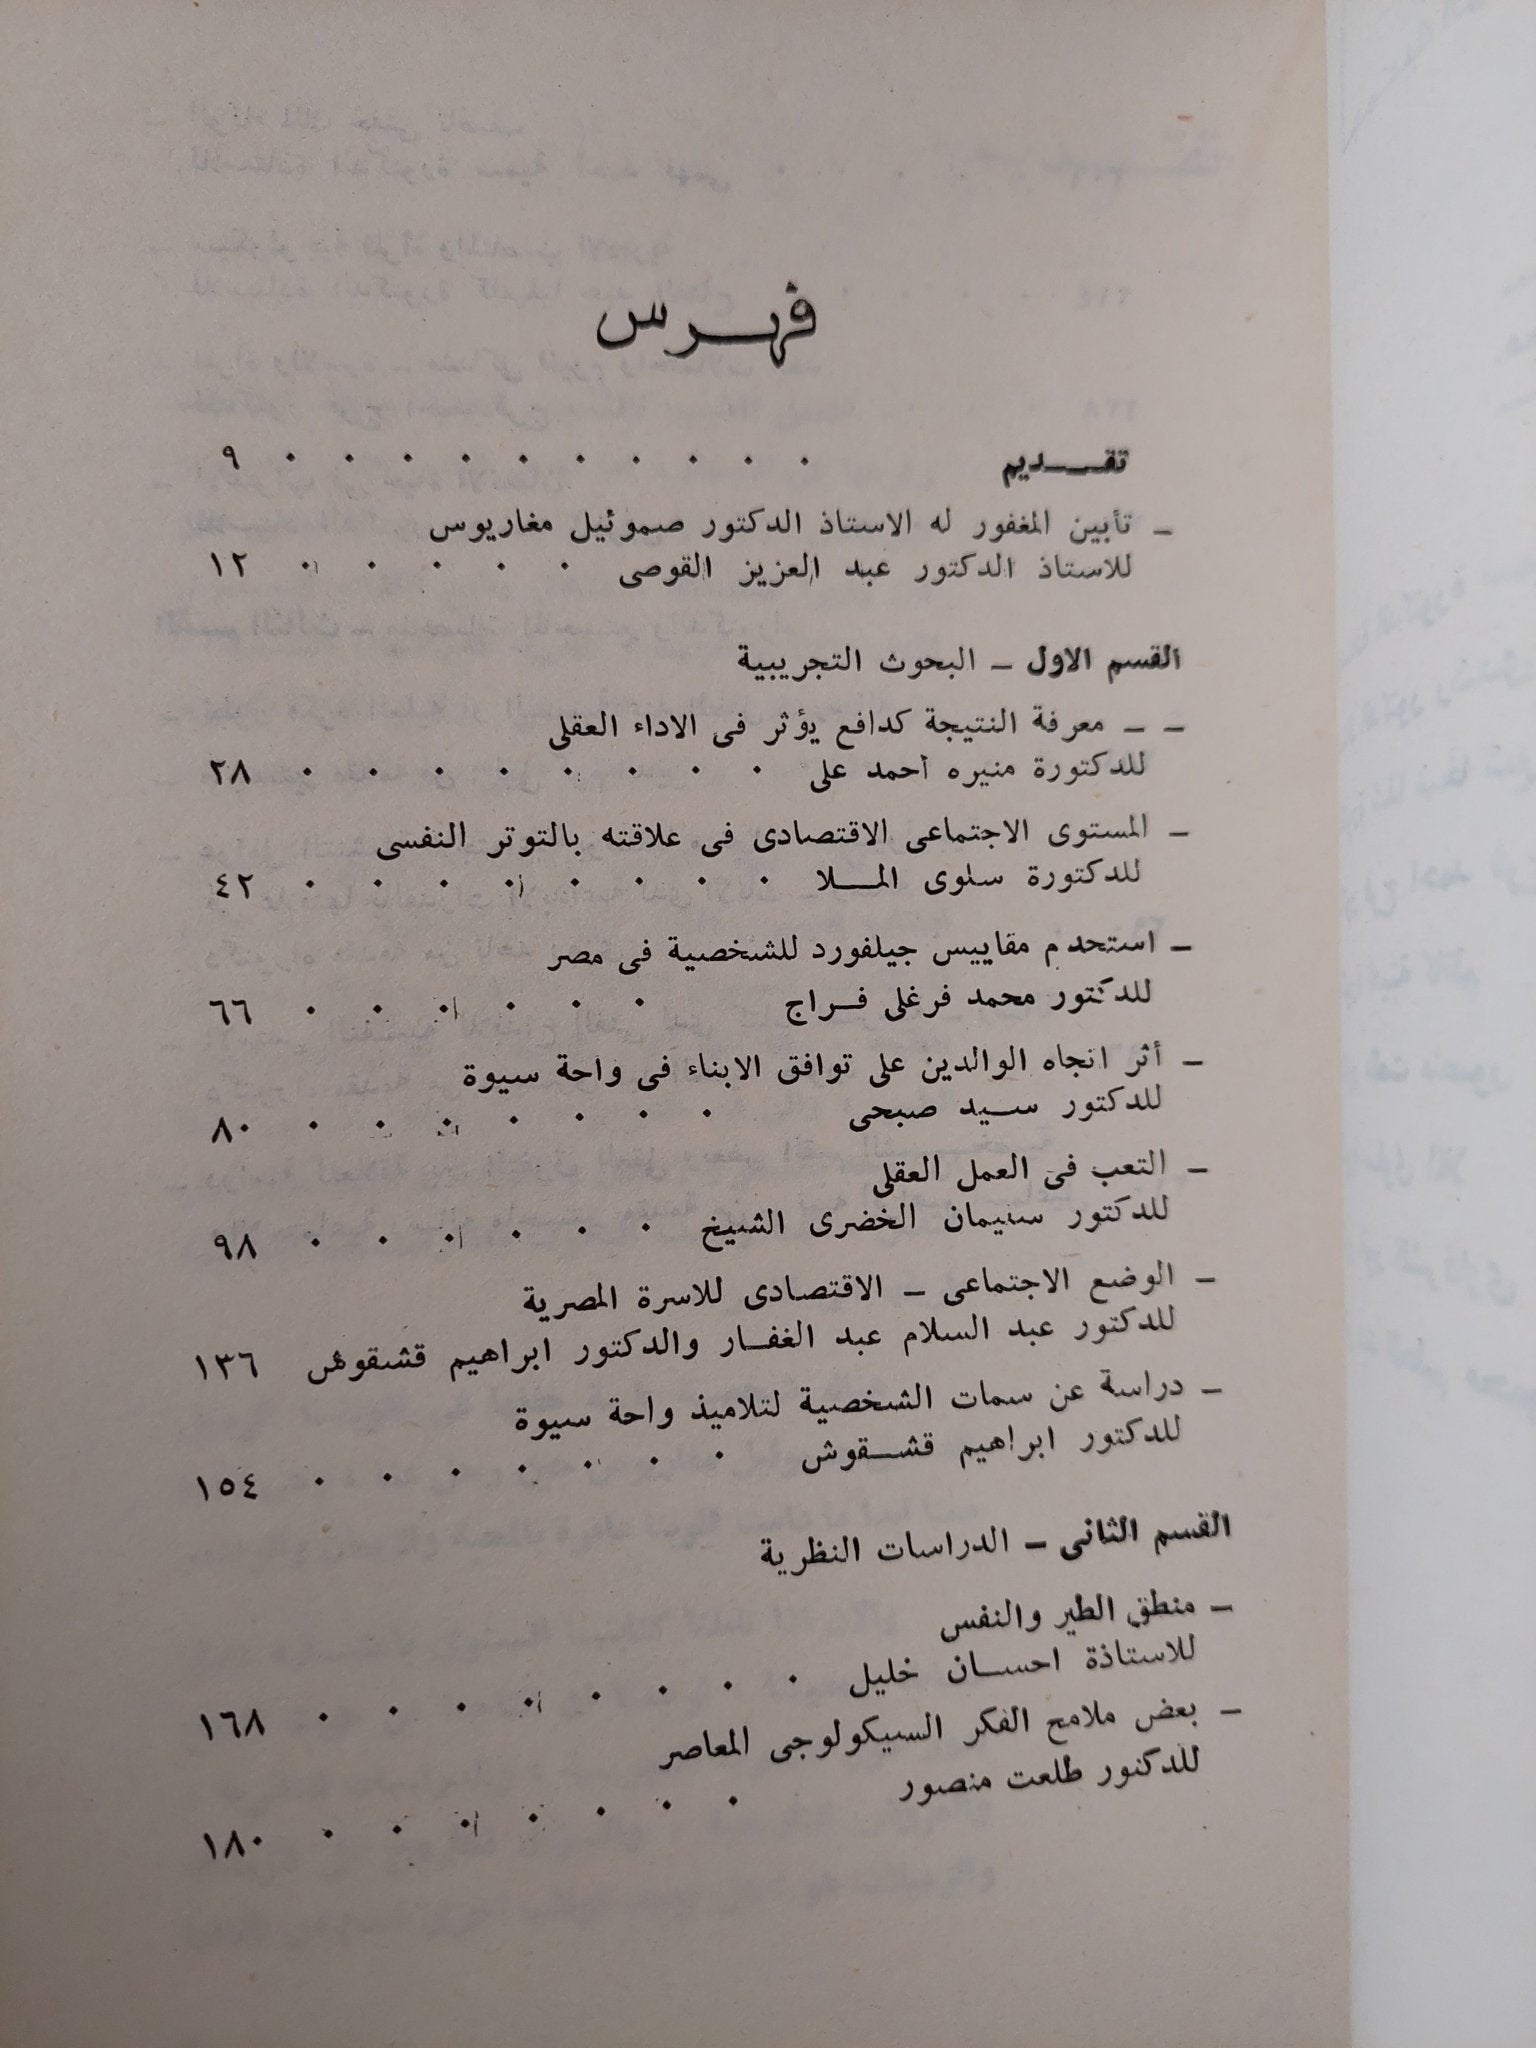 فهرس
تقديم ٩
ـ تأبين المغفور له الاستاذ الدكتور صموئيل مغاريوس
للاستاذ الدكتور عبد العزيز القوصى ١٢
القسم الاول ـ البحوث التجريبية
ـ ـ معرفة النتيجة كدافع يؤثر فى الاداء العقلى
للدكتورة منيره أحمد على ٢٨
ـ المستوى الاجتماعى الاقتصادى فى علاقته بالتوتر النفسى
للدكتورة سلوى الملا ٤٢
ـ استحدم مقاييس جيلفورد للشخصية فى مصر
للدكتور محمد فرغلى فراج ٦٦
ـ أثر اتجاه الوالدين على توافق الابناء فى واحة سيوة
للدكتور سيد صبحى ٨٠
ـ التعب فى العمل العقلى
للدكتور سليمان الخضرى الشيخ ٩٨
ـ الوضع الاجتماعى ـ الاقتصادى للاسرة المصرية
للدكتور عبد السلام عبد الغفار والدكتور ابراهيم قشقوش ١٣٦
ـ دراسة عن سمات الشخصية لتلاميذ واحة سيوة
للدكتور ابراهيم قشقوش ١٥٤
القسم الثانى ـ الدراسات النظرية
ـ منطق الطير والنفس
للاستاذة احسان خليل ١٦٨
ـ بعض ملامح الفكر السيكولوجى المعاصر
للدكتور طلعت منصور ١٨٠